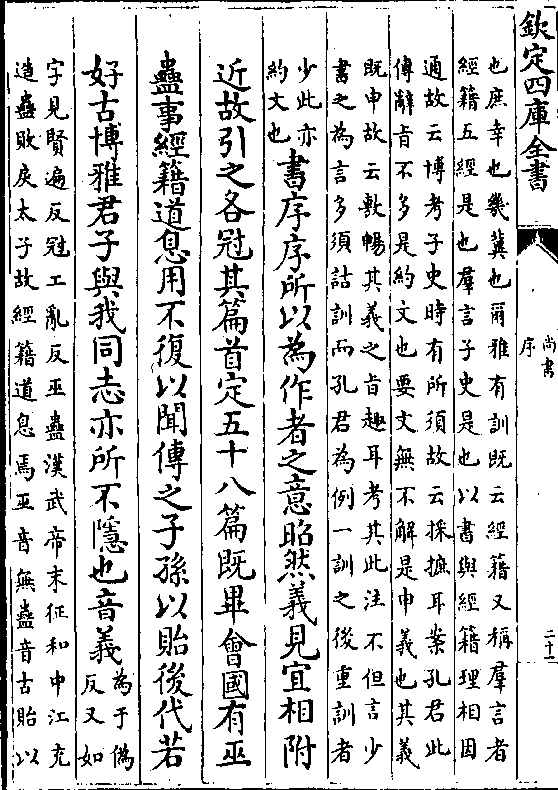 欽定四庫全書
尚書序
二十一
也庶幸也幾冀也爾雅有訓既云經籍又稱羣言者
經籍五經是也羣言子史是也以書與經籍理相因
通故云博考子史時有所須故云採摭耳案孔君此
傳辭旨不多是約文也要文無不解是申義也其義
既申故云敷暢其義之旨趣耳考其此注不但言少
書之為言多須詁訓而孔君為例一訓之後重訓者
少此亦
約文也
書序序所以為作者之意昭然義見宜相附
近故引之各冠其篇首定五十八篇既畢會國有巫
蠱事經籍道息用不復以聞傳之子孫以貽後代若
好古博雅君子與我同志亦所不隱也音義
為于偽
反又如
字見賢遍反冠工亂反巫蠱漢武帝末征和中江充
造蠱敗戾太子故經籍道息焉巫音無蠱音古貽以